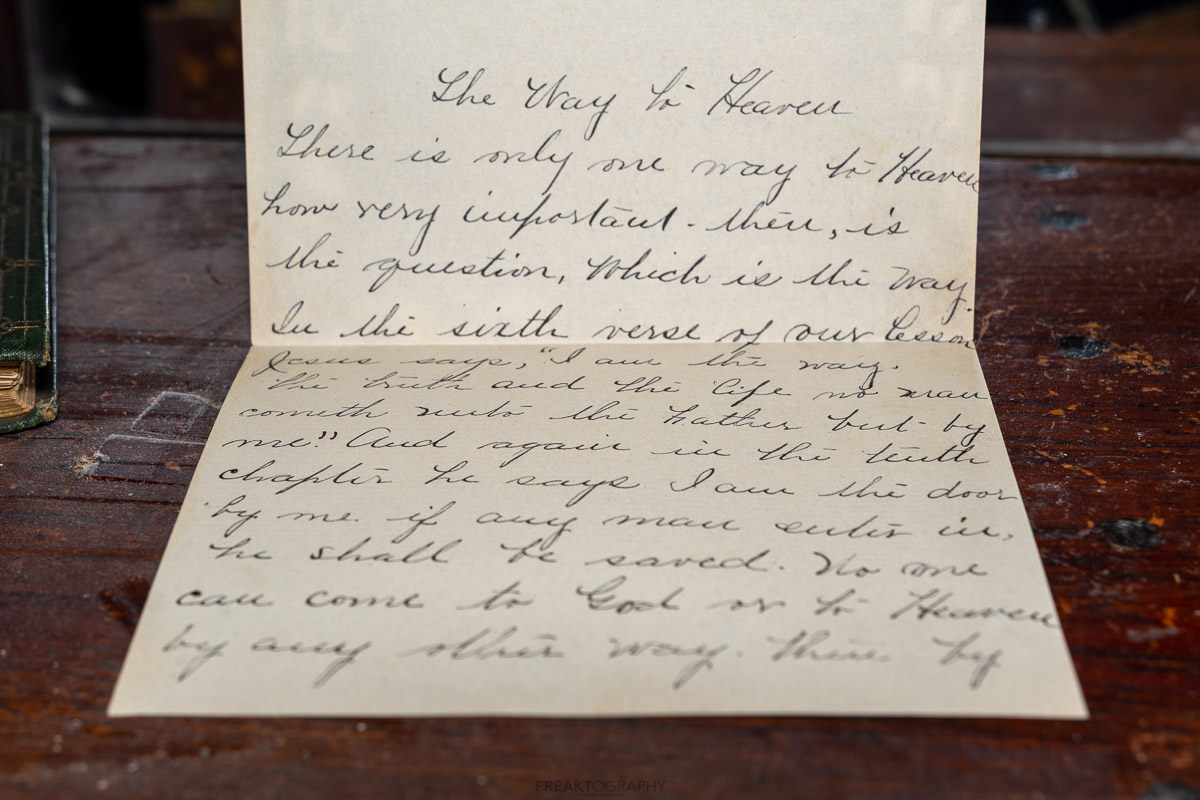 The Way to Heaven
There is only one way to Heaven
how very important - then, is
the question, Which is the Way.
In the sixth verse of our lesson
Jesus says, "I am the way.
the truth and the life no man
cometh unto the Father but by
me." And again in the tenth
chapter he says I am the door
by me. if any man enter in,
he shall be saved. No one
can come to God or to Heaven
by any other way. then by
FREAKTOGRAPHY